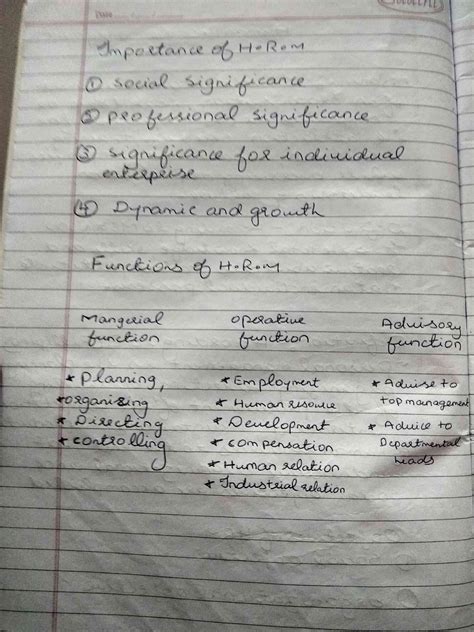 Importance of H.R.M
① social significance
② professional significance
③ significance for individual
enterprise
④ Dynamic and growth
Functions of H.R.M
Mangerial function
operative function
Advisory function
* Planning,
* organising
* Directing
* controlling
* Employment
* Human resource
* Development
* compensation
* Human relation
* Industrial relation
* Advise to
top management
* Advice to
Departmental
heads